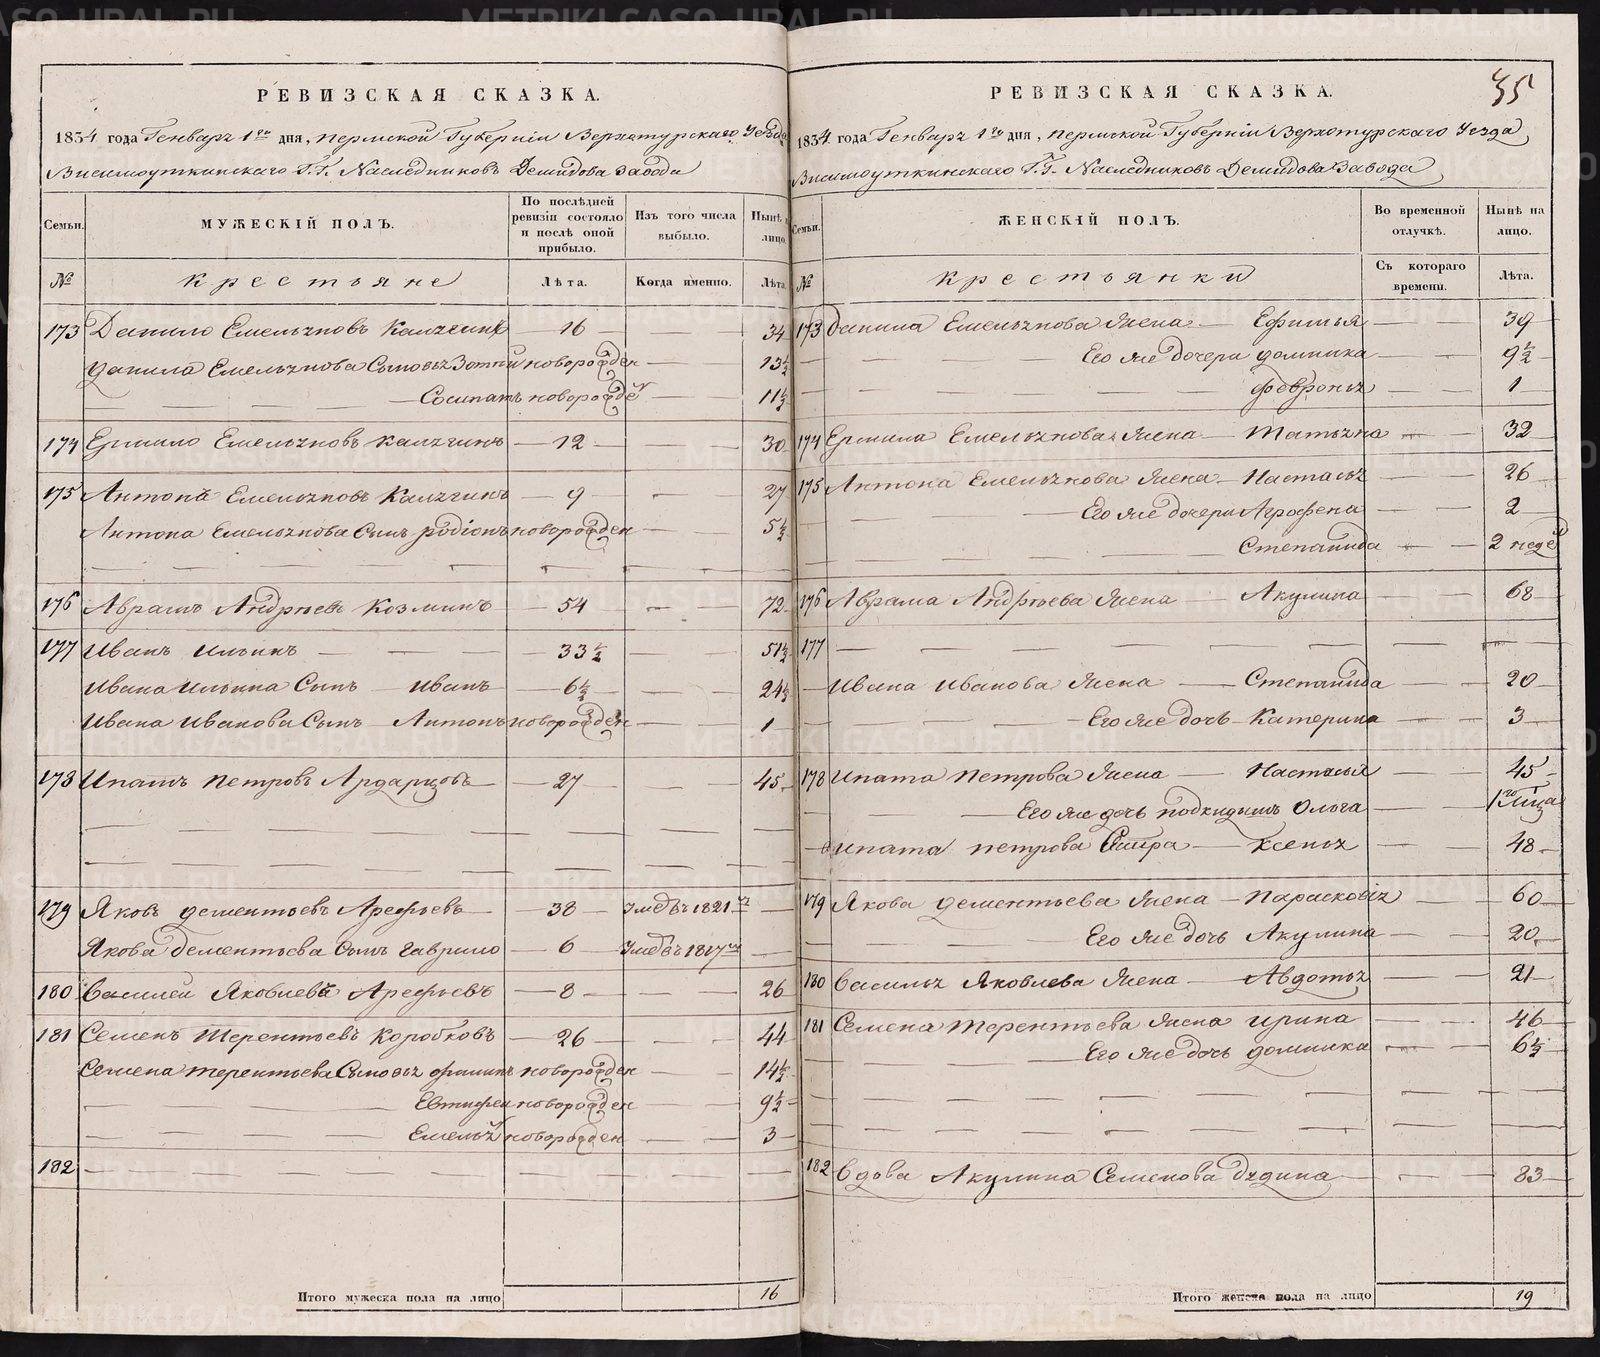 35
РЕВИЗСКАЯ СКАЗКА.
1834 года Генваря 1го дня, Пермской Губерніи Верхотурскаго Уезда
Висимоуткинскаго Г.Г. Наследниковъ Демидова завода
Семьи.
МУЖЕСКІЙ ПОЛЪ.
По послѣдней ревизіи состояло и послѣ оной прибыло.
Изъ того числа выбыло.
Нынѣ на лицо.
№
крестьяне
Лѣта.
Когда именно.
Лѣта.
173 Данило Емельяновъ Калягинъ — 16 — 34
Данила Емельянова Сыновья Зотий новорожден — 13½
Сосипатъ новорожде — 11½
174 Ермило Емельяновъ Калягинъ — 12 — 30
175 Антонъ Емельяновъ Калягинъ — 9 — 27
Антона Емельянова Сынъ Родіонъ новорожден — 5½
176 Аврамъ Андреевъ Козминъ — 54 — 72
177 Иванъ Ильинъ — 33½ — 51½
Ивана Ильина Сынъ Иванъ — 6½ — 24½
Ивана Иванова Сынъ Антонъ новорожден — 1
178 Ипатъ Петровъ Ардарцовъ — 27 — 45
179 Яковъ Дементьевъ Арефьевъ — 38 — Умеръ въ 1821
Якова Дементьева Сынъ Гаврило — 6 — Умеръ въ 1817
180 Василей Яковлевъ Арефьевъ — 8 — 26
181 Семенъ Терентьевъ Коробковъ — 26 — 44
Семена Терентьева Сыновья Филипъ новорожден — 14½
Евтифей новорожден — 9½
Емельян новорожден — 3
182
Итого мужеска пола на лицо 16
РЕВИЗСКАЯ СКАЗКА.
1834 года Генваря 1го дня, Пермской Губерніи Верхотурскаго Уезда
Висимоуткинскаго Г.Г. Наследниковъ Демидова Завода
Семьи.
ЖЕНСКІЙ ПОЛЪ.
Во временной отлучкѣ.
Нынѣ на лицо.
№
крестьянки
Съ котораго времени.
Лѣта.
173 Данила Емельянова жена — Ефимья — 39
Его же дочери Домника — 9½
Февронья — 1
174 Ермила Емельянова жена — Татьяна — 32
175 Антона Емельянова жена — Настасья — 26
Его же дочери Аграфена — 2
Степанида — 2 неде
176 Аврама Андреева жена — Акулина — 68
177
Ивана Иванова жена — Степанида — 20
Его же дочь Катерина — 3
178 Ипата Петрова жена — Настасья — 45
Его же дочь подкидышъ Ольга — 1го мца
Ипата Петрова Сестра — Ксенья — 48
179 Якова Дементьева жена — Парасковья — 60
Его же дочь Акулина — 20
180 Василья Яковлева жена — Авдотья — 21
181 Семена Терентьева жена Ирина — 46
Его же дочь Домника — 6½
182 Вдова Акулина Семенова — 83
Итого женска пола на лицо 19
METRIKI.GASO-URAL.RU